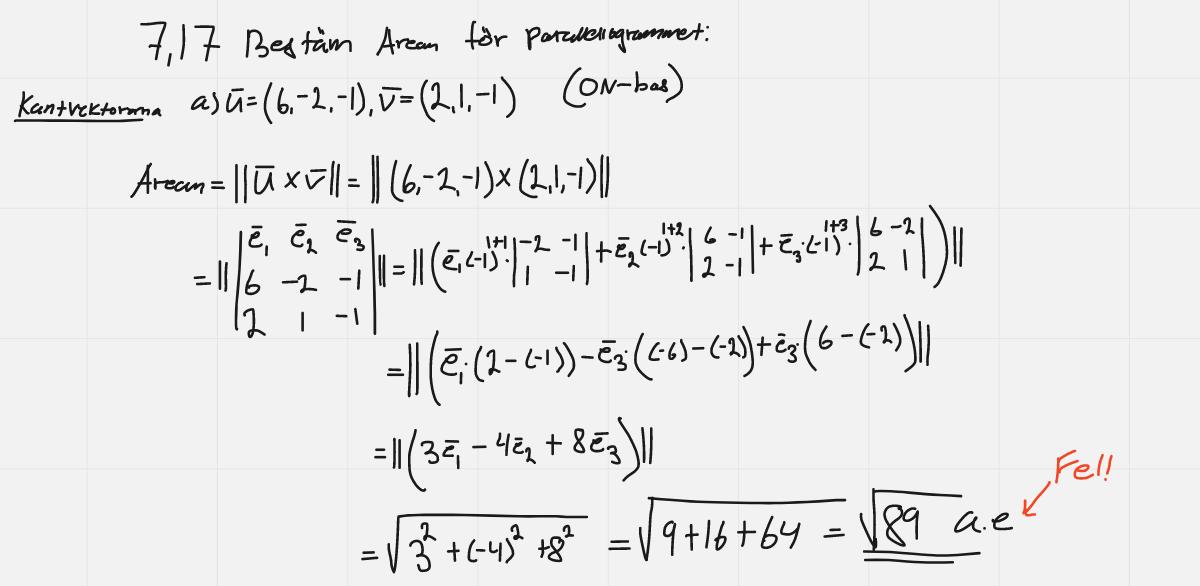 7,17 Bestäm Arean för parallellogrammet:
Kantvektorerna a) ū=(6,-2,-1), v̄=(2,1,-1) (ON-bas)
Arean = ||ū × v̄|| = ||(6,-2,-1)×(2,1,-1)||
= || |ē₁ ē₂ ē₃; 6 -2 -1; 2 1 -1| || = ||(ē₁(-1)¹⁺¹·|-2 -1; 1 -1| + ē₂(-1)¹⁺²·|6 -1; 2 -1| + ē₃·(-1)¹⁺³·|6 -2; 2 1|)||
= ||(ē₁·(2-(-1)) - ē₃·((-6)-(-2)) + ē₃·(6-(-2))||
= ||(3ē₁ - 4ē₂ + 8ē₃)||
Fel!
= √(3² + (-4)² + 8²) = √(9+16+64) = √89 a.e